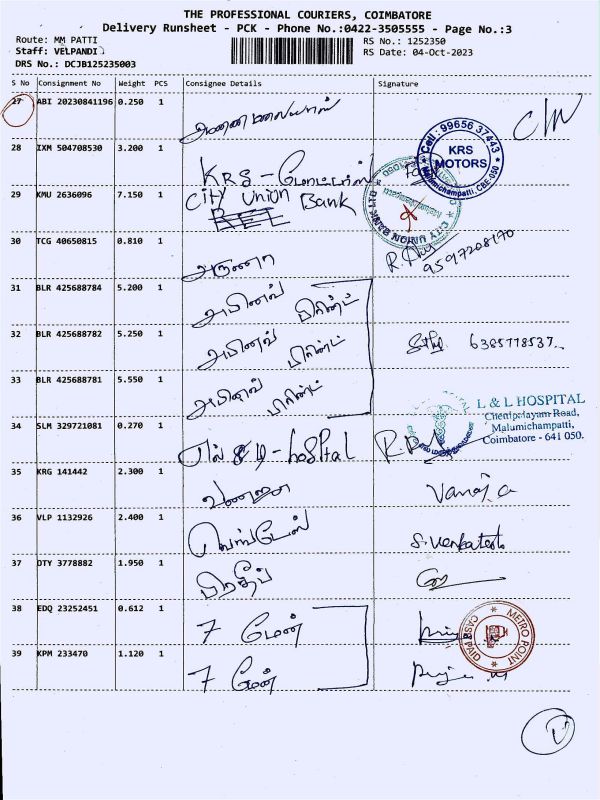 THE PROFESSIONAL COURIERS, COIMBATORE
Delivery Runsheet - PCK - Phone No.:0422-3505555 - Page No.:3
Route: MM PATTI
RS No.: 1252350
Staff: VELPANDI
RS Date: 04-Oct-2023
DRS No.: DCJB125235003
S No Consignment No Weight PCS Consignee Details Signature
27 ABI 20230841196 0.250 1
28 IXM 504708530 3.200 1 KRS - மோட்டார்ஸ்
Cell: 99656 37443
KRS
MOTORS
Malumichampatti, CBE-050
29 KMU 2636096 7.150 1 City Union Bank
CITY UNION BANK LTD
30 TCG 40650815 0.810 1 அருணா
9597208170
31 BLR 425688784 5.200 1 அபினவ் பிரிண்ட்
32 BLR 425688782 5.250 1 அபினவ் பிரிண்ட் 6385778537
33 BLR 425688781 5.550 1 அபினவ் பிரிண்ட்
34 SLM 329721081 0.270 1 எல் & எல் - hospital
L & L HOSPITAL
Chettipalayam Road,
Malumichampatti,
Coimbatore - 641 050.
35 KRG 141442 2.300 1 வனஜா Vanaja
36 VLP 1132926 2.400 1 வெங்கடேஷ் S. Venkatesh
37 DTY 3778882 1.950 1 பிரதீப்
38 EDQ 23252451 0.612 1 7 மேன்
METRO POINT
CASH PAID
39 KPM 233470 1.120 1 7 மேன்